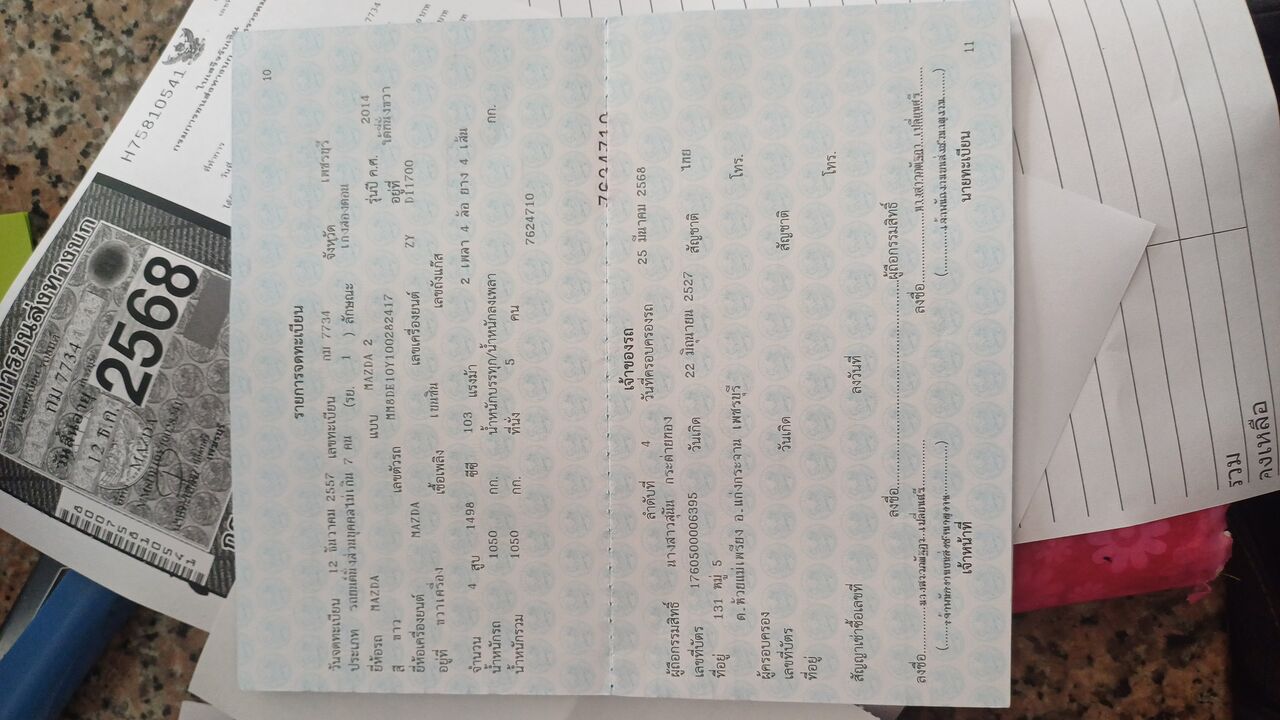 10
รายการจดทะเบียน
วันจดทะเบียน 12 ธันวาคม 2557 เลขทะเบียน กม 7734 จังหวัด เพชรบุรี
ประเภท รถยนต์นั่งส่วนบุคคลไม่เกิน 7 คน (รย. 1 ) ลักษณะ เก๋งสองตอน
ยี่ห้อรถ MAZDA แบบ MAZDA 2 รุ่นปี ค.ศ. 2014
สี ขาว เลขตัวรถ MM8DE10Y100282417 อยู่ที่
ยี่ห้อเครื่องยนต์ MAZDA เลขเครื่องยนต์ ZY D11700
อยู่ที่ ขวาเครื่อง เชื้อเพลิง เบนซิน เลขถังแก๊ส
จำนวน 4 สูบ 1498 ซีซี 103 แรงม้า 2 เพลา 4 ล้อ ยาง 4 เส้น
น้ำหนักรถ 1050 กก. น้ำหนักบรรทุก/น้ำหนักลงเพลา กก.
น้ำหนักรวม 1050 กก. ที่นั่ง 5 คน
7624710
7624710
เจ้าของรถ
ลำดับที่ 4 วันที่ครอบครองรถ 25 มีนาคม 2568
ผู้ถือกรรมสิทธิ์ นางสาวสุนัน กระต่ายทอง
เลขที่บัตร 1760500006395 วันเกิด 22 มิถุนายน 2527 สัญชาติ ไทย
ที่อยู่ 131 หมู่ 5
ต.ห้วยแม่เพรียง อ.แก่งกระจาน เพชรบุรี โทร.
ผู้ครอบครอง
เลขที่บัตร วันเกิด สัญชาติ
ที่อยู่ โทร.
สัญญาเช่าซื้อเลขที่ ลงวันที่
ลงชื่อ ผู้ถือกรรมสิทธิ์
ลงชื่อ ลงชื่อ
เจ้าหน้าที่ นายทะเบียน
11
H75810541
ใบเสร็จรับเงิน
กรมการขนส่งทางบก
7734
กม 7734
วันสิ้นอายุ
12 ธ.ค. 2568
MAZDA
เพชรบุรี
80075810541
รวม
คงเหลือ